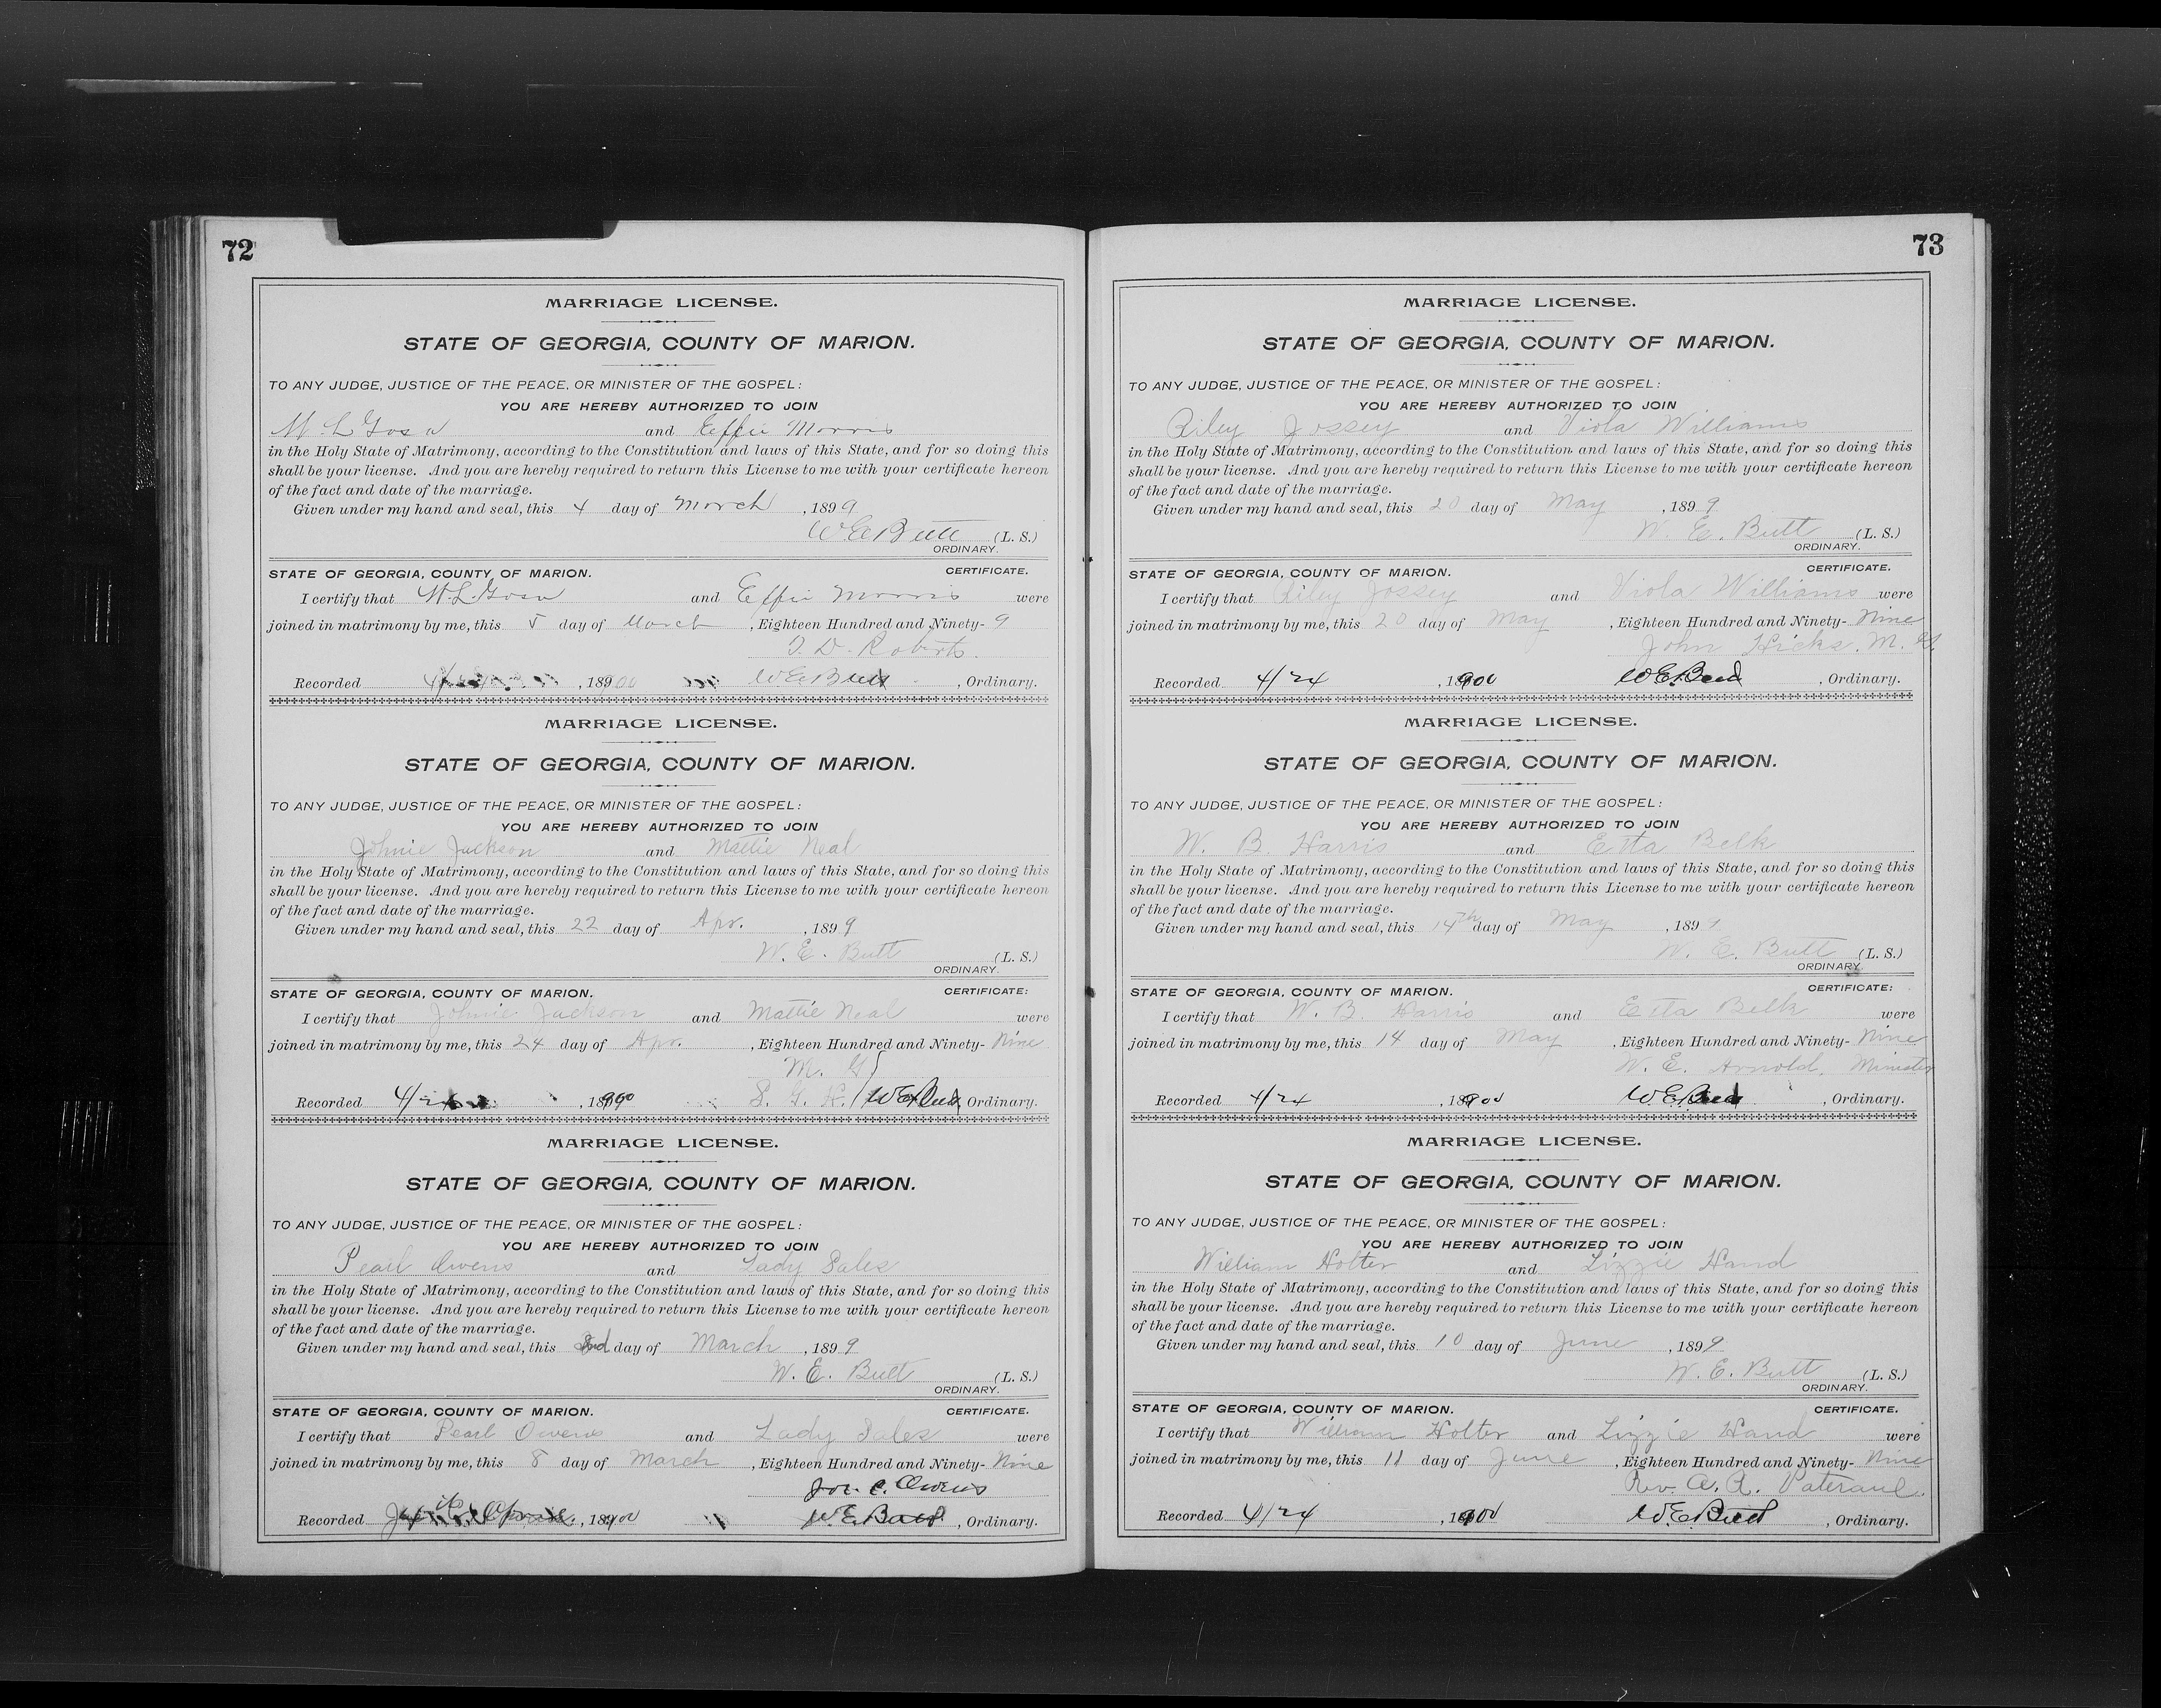 72
MARRIAGE LICENSE.
STATE OF GEORGIA, COUNTY OF MARION.
TO ANY JUDGE, JUSTICE OF THE PEACE, OR MINISTER OF THE GOSPEL:
YOU ARE HEREBY AUTHORIZED TO JOIN
and Effie Morris
in the Holy State of Matrimony, according to the Constitution and laws of this State, and for so doing this
shall be your license. And you are hereby required to return this License to me with your certificate hereon
of the fact and date of the marriage.
Given under my hand and seal, this 4 day of March, 1899
W E Butt (L. S.)
ORDINARY.
STATE OF GEORGIA, COUNTY OF MARION. CERTIFICATE.
I certify that and Effie Morris were
joined in matrimony by me, this 5 day of March, Eighteen Hundred and Ninety-9
D. Roberts.
Recorded , 18900 W E Butt, Ordinary.
MARRIAGE LICENSE.
STATE OF GEORGIA, COUNTY OF MARION.
TO ANY JUDGE, JUSTICE OF THE PEACE, OR MINISTER OF THE GOSPEL:
YOU ARE HEREBY AUTHORIZED TO JOIN
Johnie Jackson and Mattie Neal
in the Holy State of Matrimony, according to the Constitution and laws of this State, and for so doing this
shall be your license. And you are hereby required to return this License to me with your certificate hereon
of the fact and date of the marriage.
Given under my hand and seal, this 22 day of Apr., 1899
W. E. Butt (L. S.)
ORDINARY.
STATE OF GEORGIA, COUNTY OF MARION. CERTIFICATE:
I certify that Johnie Jackson and Mattie Neal were
joined in matrimony by me, this 24 day of Apr., Eighteen Hundred and Ninety-Nine
M. G.
Recorded S. G. K. W E Butt, Ordinary.
MARRIAGE LICENSE.
STATE OF GEORGIA, COUNTY OF MARION.
TO ANY JUDGE, JUSTICE OF THE PEACE, OR MINISTER OF THE GOSPEL:
YOU ARE HEREBY AUTHORIZED TO JOIN
Pearl Owens and Lady Sales
in the Holy State of Matrimony, according to the Constitution and laws of this State, and for so doing this
shall be your license. And you are hereby required to return this License to me with your certificate hereon
of the fact and date of the marriage.
Given under my hand and seal, this day of March, 1899
W. E. Butt (L. S.)
ORDINARY.
STATE OF GEORGIA, COUNTY OF MARION. CERTIFICATE.
I certify that Pearl Owens and Lady Sales were
joined in matrimony by me, this 8 day of March, Eighteen Hundred and Ninety-Nine
C. Owens
Recorded W. E. Butt, Ordinary.
73
MARRIAGE LICENSE.
STATE OF GEORGIA, COUNTY OF MARION.
TO ANY JUDGE, JUSTICE OF THE PEACE, OR MINISTER OF THE GOSPEL:
YOU ARE HEREBY AUTHORIZED TO JOIN
Riley Jossey and Viola Williams
in the Holy State of Matrimony, according to the Constitution and laws of this State, and for so doing this
shall be your license. And you are hereby required to return this License to me with your certificate hereon
of the fact and date of the marriage.
Given under my hand and seal, this 20 day of May, 1899
W. E. Butt (L. S.)
ORDINARY.
STATE OF GEORGIA, COUNTY OF MARION. CERTIFICATE.
I certify that Riley Jossey and Viola Williams were
joined in matrimony by me, this 20 day of May, Eighteen Hundred and Ninety-Nine
John Hicks. M. G.
Recorded 4/24, 1900 W E Butt, Ordinary.
MARRIAGE LICENSE.
STATE OF GEORGIA, COUNTY OF MARION.
TO ANY JUDGE, JUSTICE OF THE PEACE, OR MINISTER OF THE GOSPEL:
YOU ARE HEREBY AUTHORIZED TO JOIN
W. B. Harris and Etta Belk
in the Holy State of Matrimony, according to the Constitution and laws of this State, and for so doing this
shall be your license. And you are hereby required to return this License to me with your certificate hereon
of the fact and date of the marriage.
Given under my hand and seal, this 14th day of May, 1899
W. E. Butt (L. S.)
ORDINARY.
STATE OF GEORGIA, COUNTY OF MARION. CERTIFICATE:
I certify that W. B. Harris and Etta Belk were
joined in matrimony by me, this 14 day of May, Eighteen Hundred and Ninety-Nine
W. E. Arnold, Minister
Recorded 4/24, 1900 W E Butt, Ordinary.
MARRIAGE LICENSE.
STATE OF GEORGIA, COUNTY OF MARION.
TO ANY JUDGE, JUSTICE OF THE PEACE, OR MINISTER OF THE GOSPEL:
YOU ARE HEREBY AUTHORIZED TO JOIN
William Holter and Lizzie Hand
in the Holy State of Matrimony, according to the Constitution and laws of this State, and for so doing this
shall be your license. And you are hereby required to return this License to me with your certificate hereon
of the fact and date of the marriage.
Given under my hand and seal, this 10 day of June, 1899
W. E. Butt (L. S.)
ORDINARY.
STATE OF GEORGIA, COUNTY OF MARION. CERTIFICATE.
I certify that William Holter and Lizzie Hand were
joined in matrimony by me, this 11 day of June, Eighteen Hundred and Ninety-Nine
Rev. A. R.
Recorded 4/24, 1900 W E Butt, Ordinary.